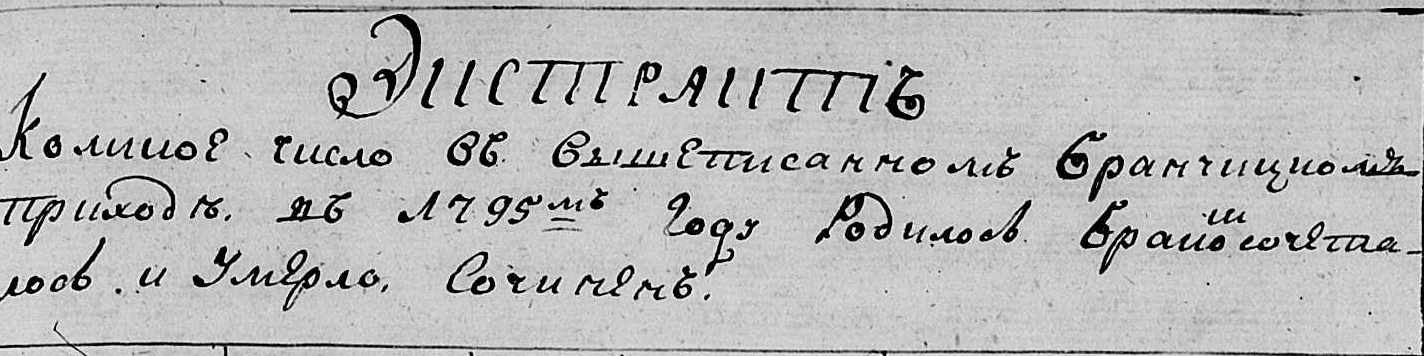 Экстрактъ
Коликое число въ вышеписанномъ Бранчицкомъ
приходѣ. въ 1795мъ году родилось бракосочета-
лось. и умерло. Сочиненъ.